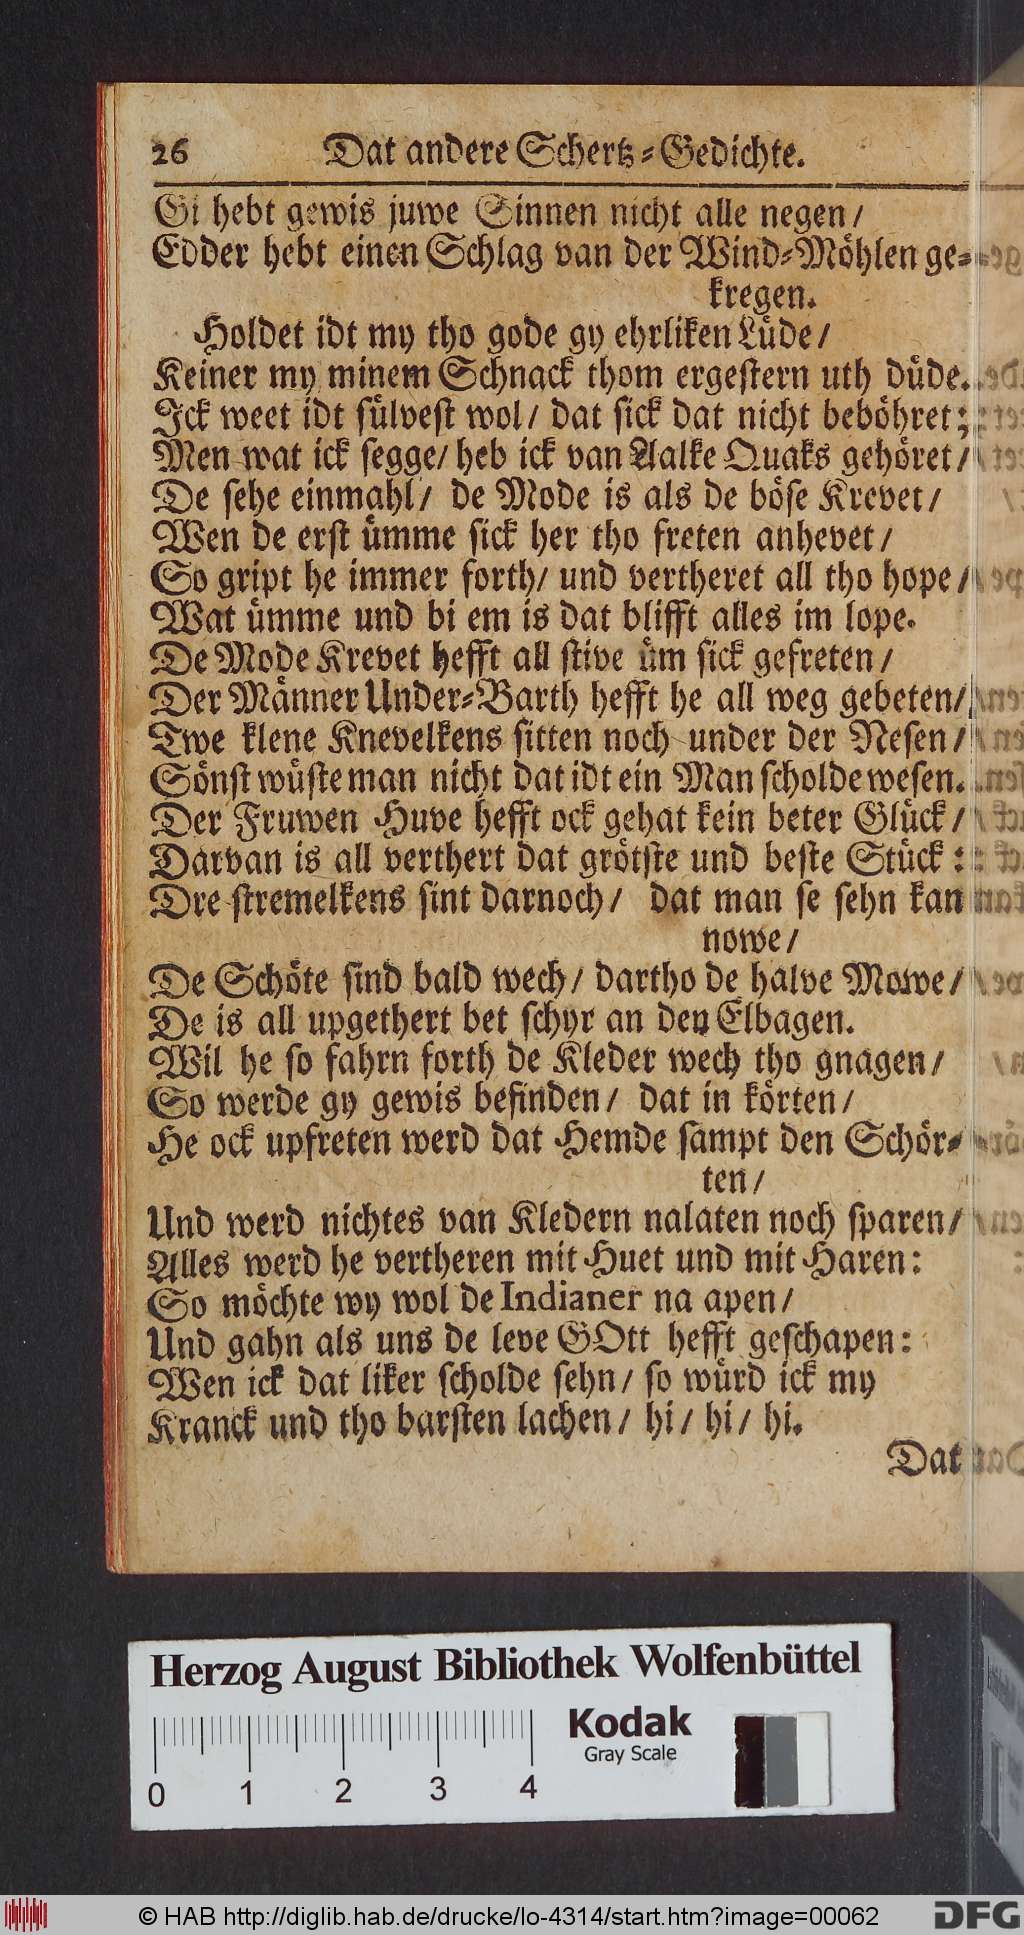 26 Dat andere Schertz-Gedichte.
Gi hebt gewis juwe Sinnen nicht alle negen/
Edder hebt einen Schlag van der Wind-Möhlen ge-
kregen.
Holdet idt my tho gode gy ehrliken Lüde/
Keiner my minem Schnack thom ergestern uth düde.
Ick weet idt sülvest wol/ dat sick dat nicht beböhret;
Men wat ick segge/ heb ick van Aalke Quaks gehöret/
De sehe einmahl/ de Mode is als de böse Krevet/
Wen de erst ümme sick her tho freten anhevet/
So gript he immer forth/ und vertheret all tho hope/
Wat ümme und bi em is dat blifft alles im lope.
De Mode Krevet hefft all stive üm sick gefreten/
Der Männer Under-Barth hefft he all weg gebeten/
Twe klene Knevelkens sitten noch under der Nesen/
Sönst wüste man nicht dat idt ein Man scholde wesen.
Der Fruwen Huve hefft ock gehat kein beter Glück/
Darvan is all verthert dat grötste und beste Stück:
Dre stremelkens sint darnoch/ dat man se sehn kan
nowe/
De Schöte sind bald wech/ dartho de halve Mowe/
De is all upgethert bet schyr an den Elbagen.
Wil he so fahrn forth de Kleder wech tho gnagen/
So werde gy gewis befinden/ dat in körten/
He ock upfreten werd dat Hemde sampt den Schör-
ten/
Und werd nichtes van Kledern nalaten noch sparen/
Alles werd he vertheren mit Huet und mit Haren:
So möchte wy wol de Indianer na apen/
Und gahn als uns de leve GOtt hefft geschapen:
Wen ick dat liker scholde sehn/ so würd ick my
Kranck und tho barsten lachen/ hi/ hi/ hi.
Dat
Herzog August Bibliothek Wolfenbüttel
Kodak
Gray Scale
0 1 2 3 4
© HAB http://diglib.hab.de/drucke/lo-4314/start.htm?image=00062
DFG